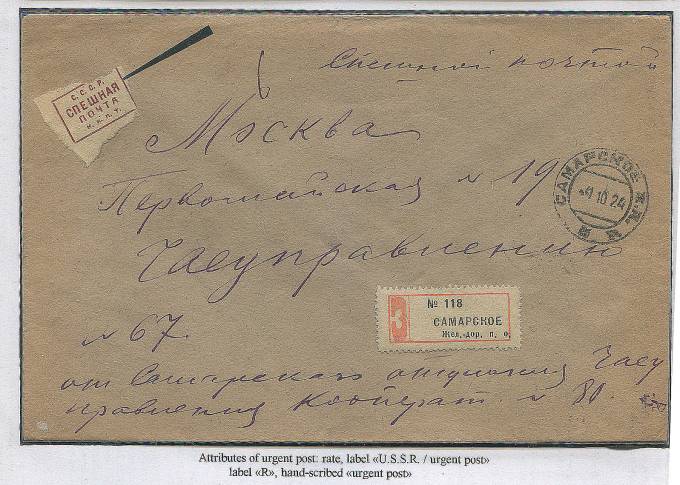 Спешной почтой
С. С. С. Р.
СПЕШНАЯ
ПОЧТА
Н. К. П. Т.
Москва
Первомайская № 19
САМАРСКОЕ Ж.Д.
-9 10 24
Чаеуправлению
№ 67.
З
№ 118
САМАРСКОЕ
Жел.-дор. п. о.
от Самарскаго отделения Чаеу
правления Кооперат. № 80.
Attributes of urgent post: rate, label «U.S.S.R. / urgent post»
label «R», hand-scribed «urgent post»